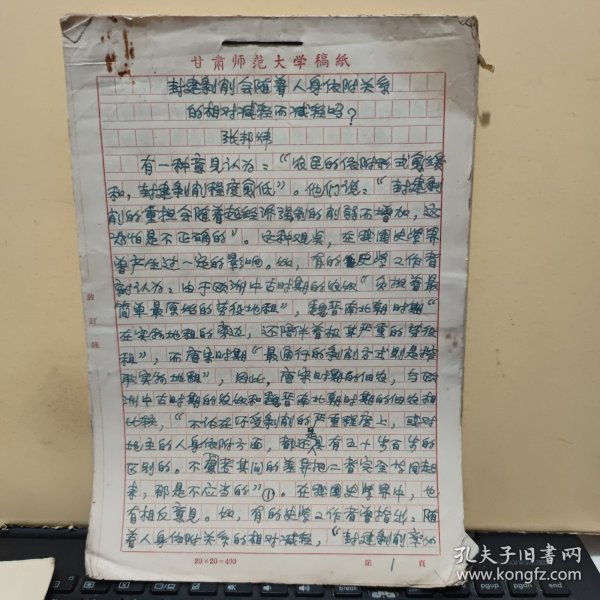 甘肃师范大学稿紙
封建剥削会随着人身依附关系
的相对减轻而减轻吗?
张邦炜
有一种意见认为:“农民的依附形式愈缓
和,封建剥削程度愈低”。他们说:“封建剥
削的重担会随着超经济强制的削弱而增加,这
恐怕是不正确的”。这种观点,在我国史学界
曾产生过一定的影响。如,有的史学工作者
就认为:由于欧洲中古时期的农奴“负担着最
简单最原始的劳役地租”,魏晋南北朝时期“
在实物地租的旁边,还陪伴着极其严重的劳役
租”,而唐宋时期“最通行的剥削方式则是榨
取实物地租”,因此,唐宋时期的佃农,与欧
洲中古时期的农奴和魏晋南北朝时期的佃农相
比较,“不论在所受剥削的严重程度上,或对
地主的人身依附方面,都还是有五十步百步的
区别的。不顾其间的差异把二者完全等同起
来,那是不应当的”①。在我国史学界中,也
有相反意见。如,有的史学工作者曾指出:随
着人身依附关系的相对减轻,“封建剥削率仍
装訂綫
20×20=400
第 1 頁
孔夫子旧书网
www.kongfz.com